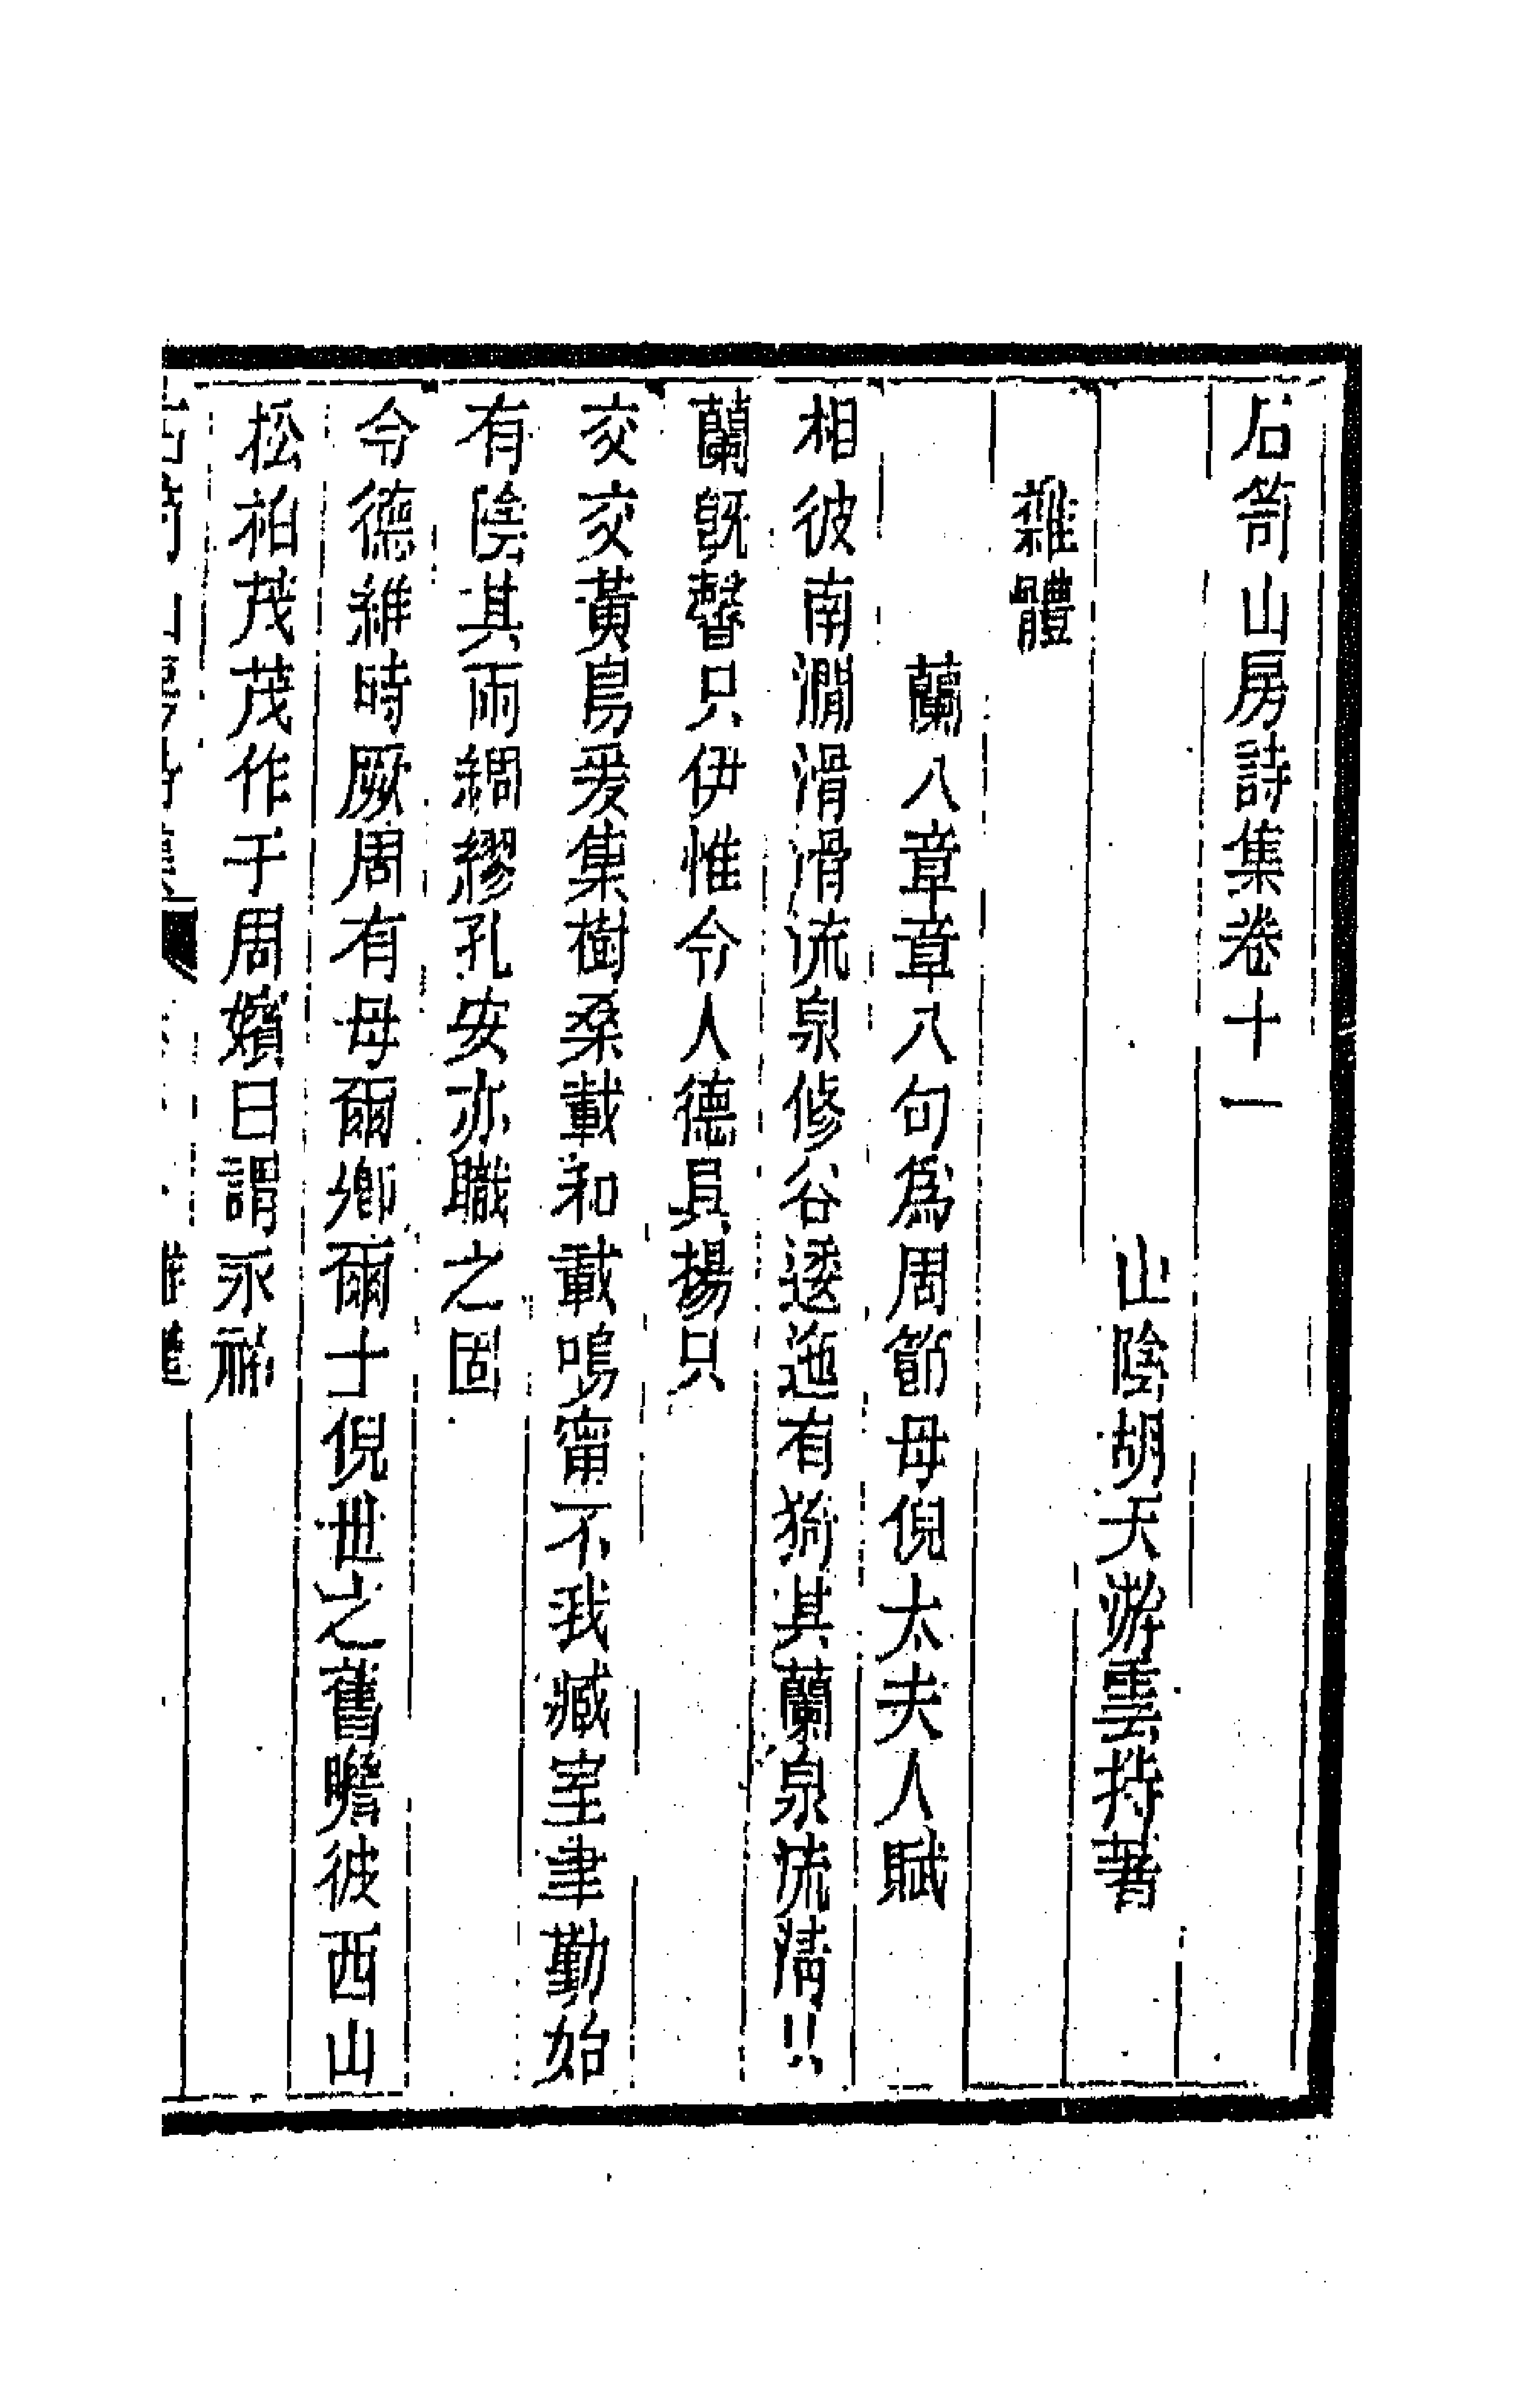 石笥山房詩集卷十一
山陰胡天游雲持著
雜體
蘭八章章八句爲周節母倪太夫人賦
相彼南澗滑滑流泉修谷逶迤有猗其蘭泉流淸只
蘭旣馨只伊惟令人德具揚只
交交黃鳥爰集樹桑載和載鳴甯不我臧室聿勤始
有陰其雨綢繆孔安亦職之固
令德維時厥周有母爾鄉爾士倪世之舊瞻彼西山
松柏茂茂作于周嬪曰謂永